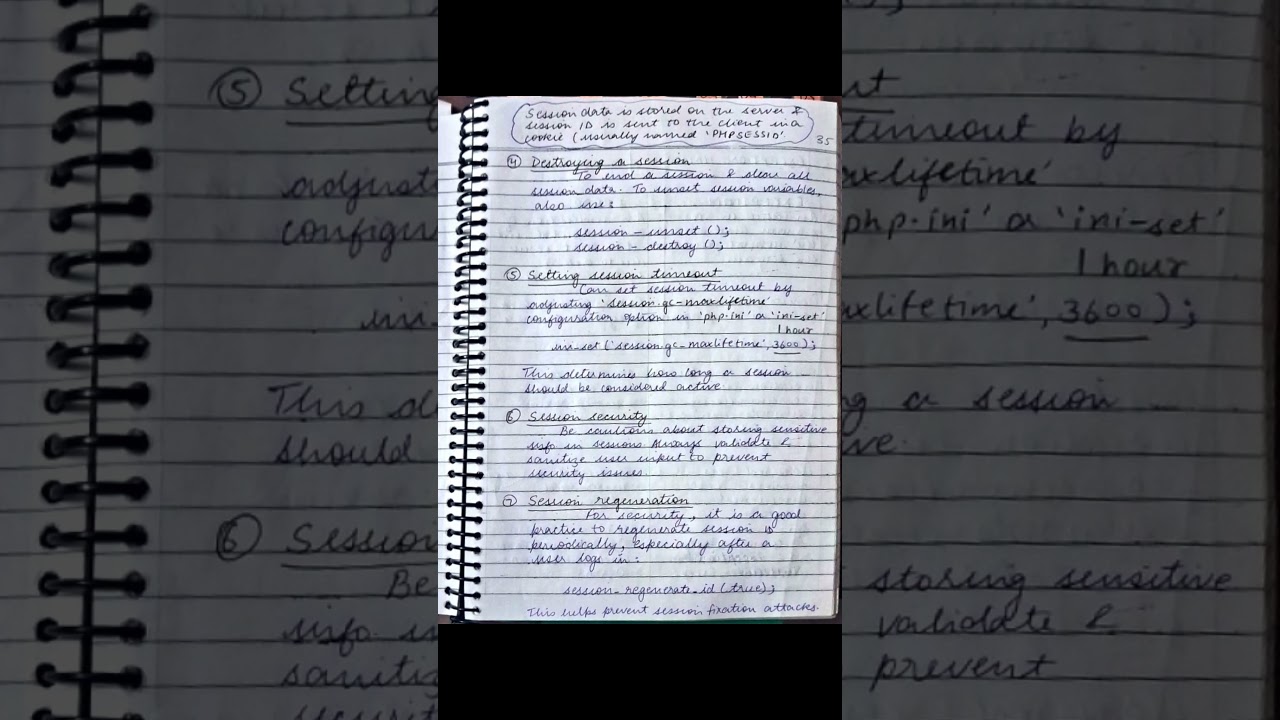 Session data is stored on the server &
session ID is sent to the client in a
cookie (usually named 'PHPSESSID'.
35
④ Destroying a session
To end a session & clear all
session data. To unset session variables,
also use:
session-unset ();
session-destroy ();
⑤ Setting session timeout
Can set session timeout by
adjusting 'session.gc-maxlifetime'
configuration option in 'php.ini' or 'ini-set'
1 hour
ini-set ('session.gc-maxlifetime', 3600);
This determines how long a session
should be considered active.
⑥ Session security
Be cautious about storing sensitive
info in sessions Always validate &
sanitize user input to prevent
security issues.
⑦ Session regeneration
For security, it is a good
practice to regenerate session ID
periodically, especially after a
user logs in:
session_regenerate_id (true);
This helps prevent session fixation attacks.